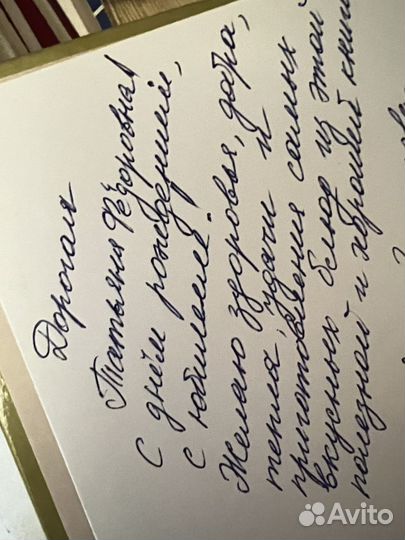 Дорогая
Татьяна Фёдоровна!
С днём рождения,
с юбилеем!
Желаю здоровья, добра,
тепла, удачи и
приготовления самых
вкусных блюд из этой
полезной и хорошей книг
Avito